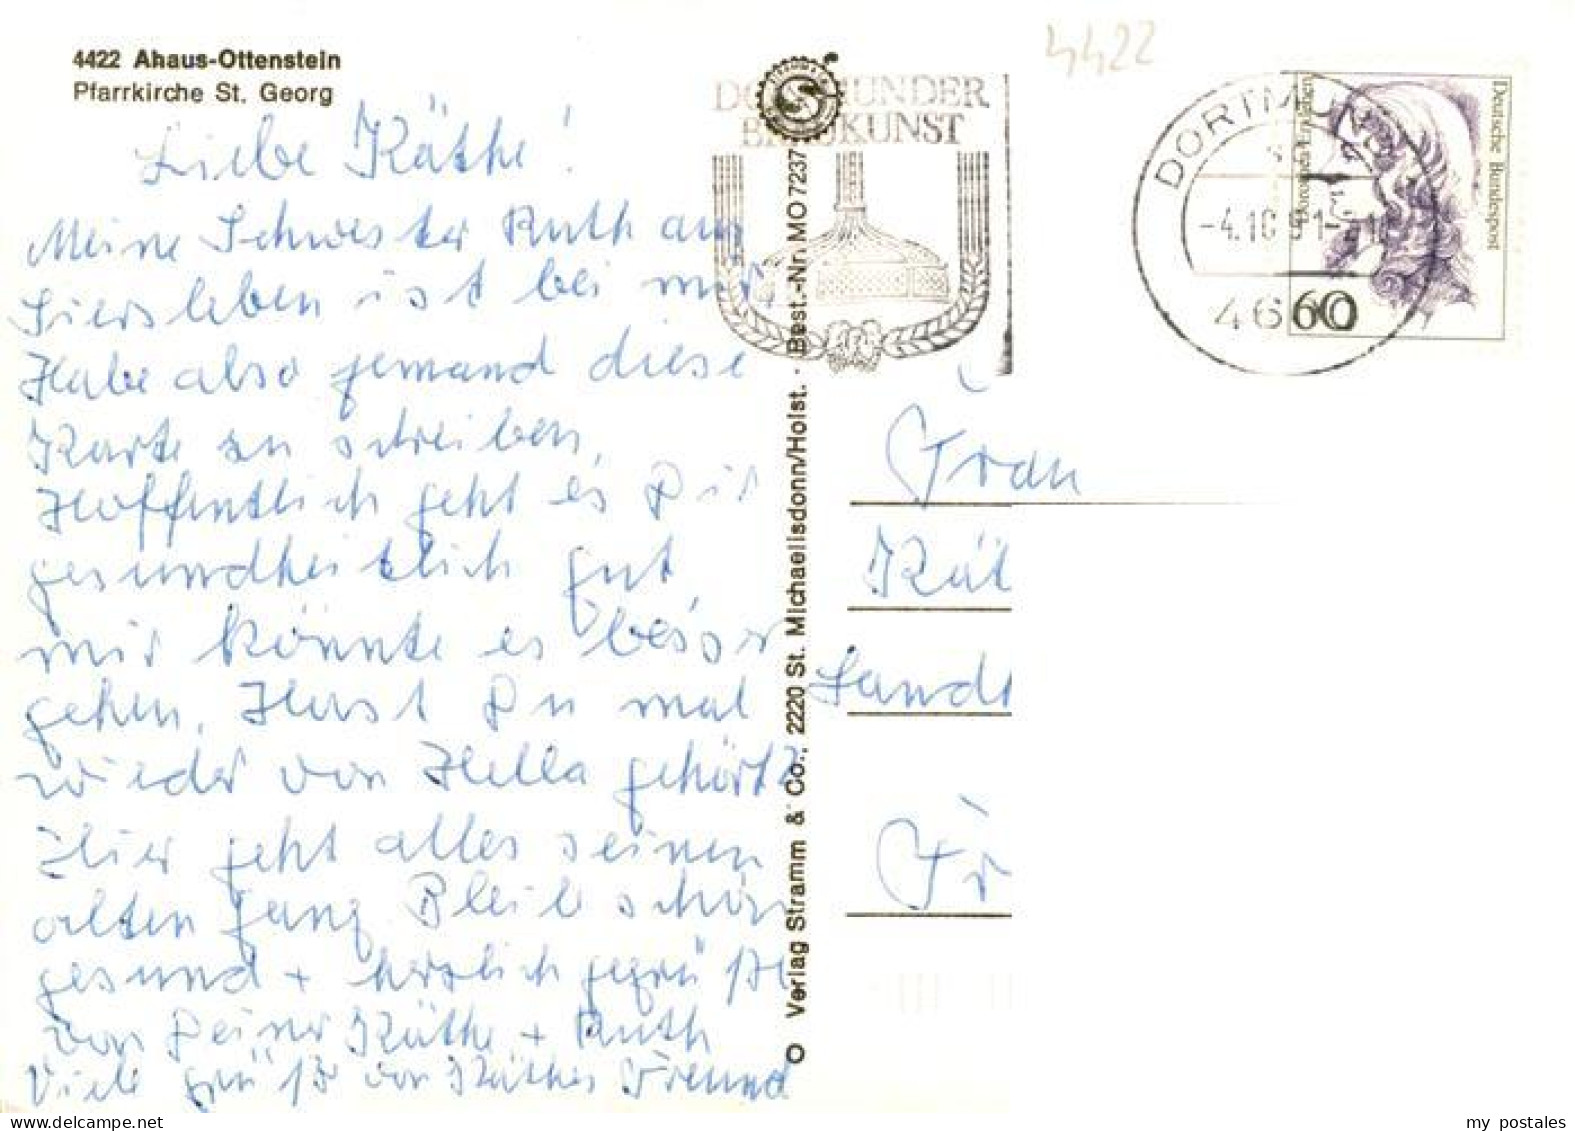 4422 Ahaus-Ottenstein
Pfarrkirche St. Georg
4422
Liebe Käthe!
Meine Schwester Ruth aus
Siersleben ist bei mir,
Habe also jemand diese
Karte zu schreiben,
Hoffentlich geht es Dir
gesundheitlich gut,
mir könnte es besser
gehen. Hast Du mal
wieder von Hella gehört?
Hier geht alles seinen
alten Gang Bleib schön
gesund + herzlich gegrüßt
von Deiner Käthe + Ruth
Viele Grüße von Käthes Freund
O Verlag Stramm & Co., 2220 St. Michaelisdonn/Holst. · Best.-Nr. MO 7237
DORTMUNDER
BRAUKUNST
DORTMUND
46
Deutsche Bundespost
60
Frau
Kät
Fr
my postales